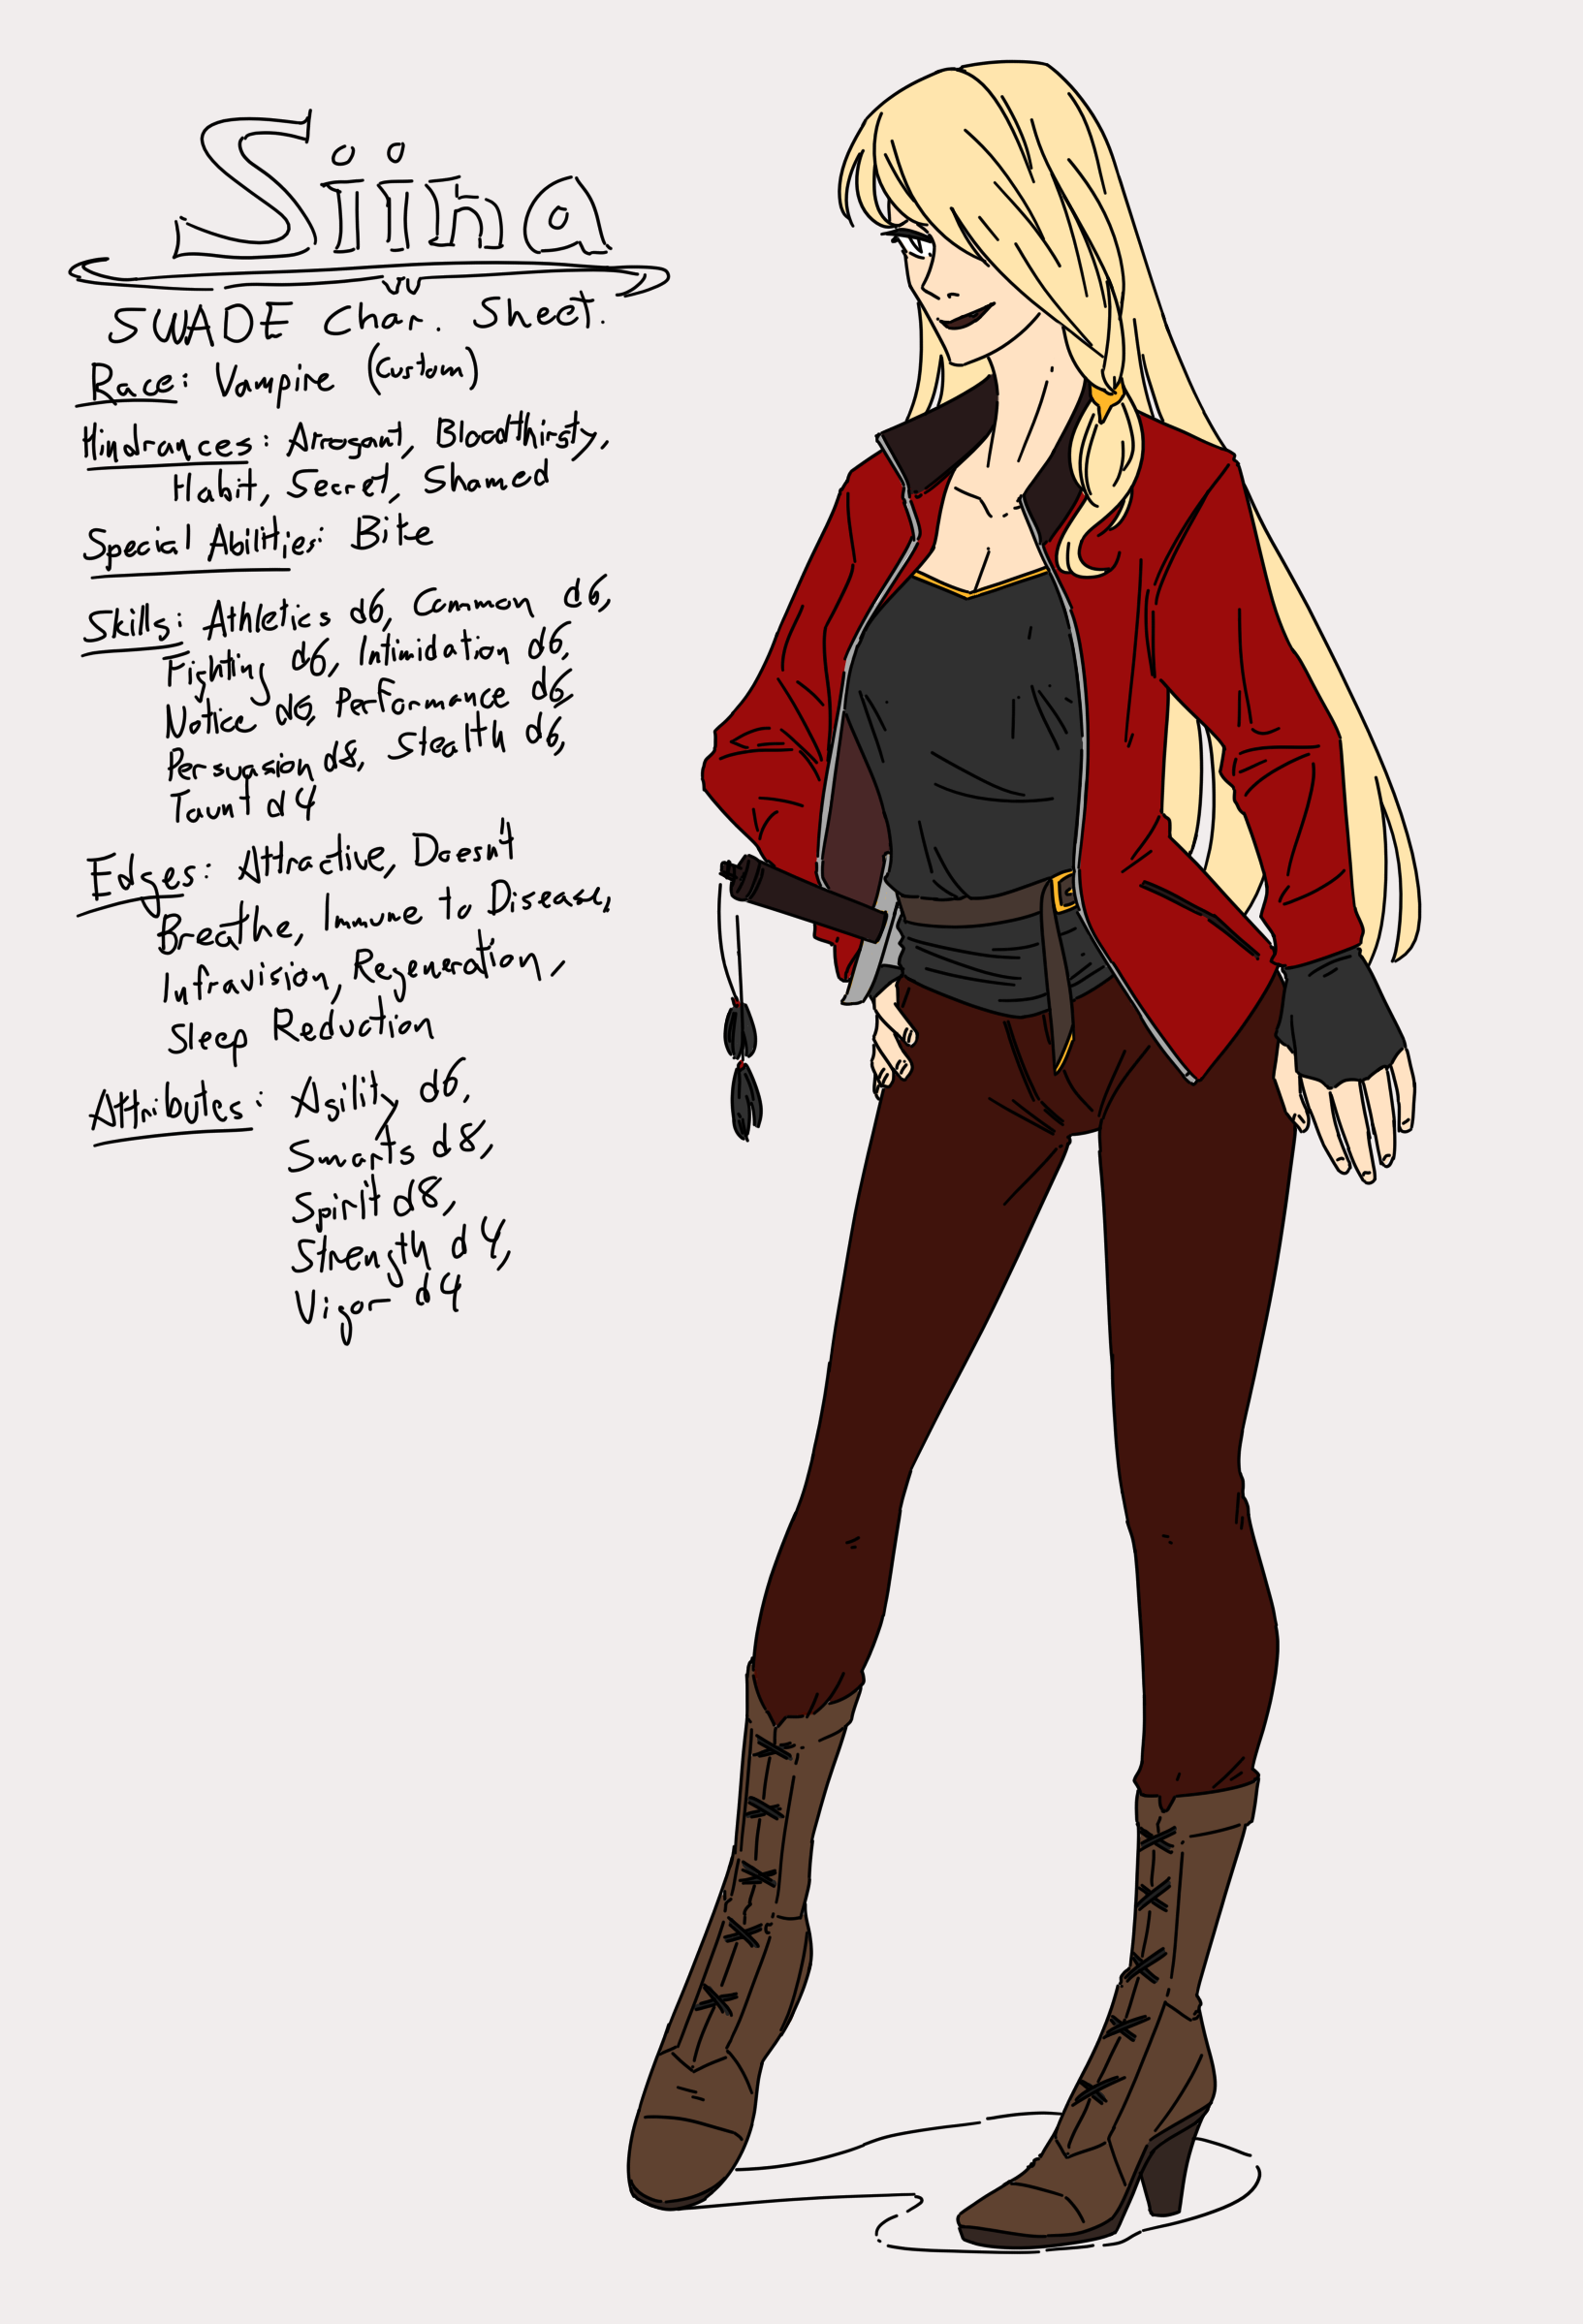 Siina
SWADE Char. Sheet.
Race: Vampire (Custom)
Hindrances: Arrogant, Bloodthirsty,
Habit, Secret, Shamed
Special Abilities: Bite
Skills: Athletics d6, Common d6,
Fighting d6, Intimidation d6,
Notice d6, Performance d6,
Persuasion d8, Stealth d6,
Taunt d4
Edges: Attractive, Doesn't
Breathe, Immune to Disease,
Infravision, Regeneration,
Sleep Reduction
Attributes: Agility d6,
Smarts d8,
Spirit d8,
Strength d4,
Vigor d4